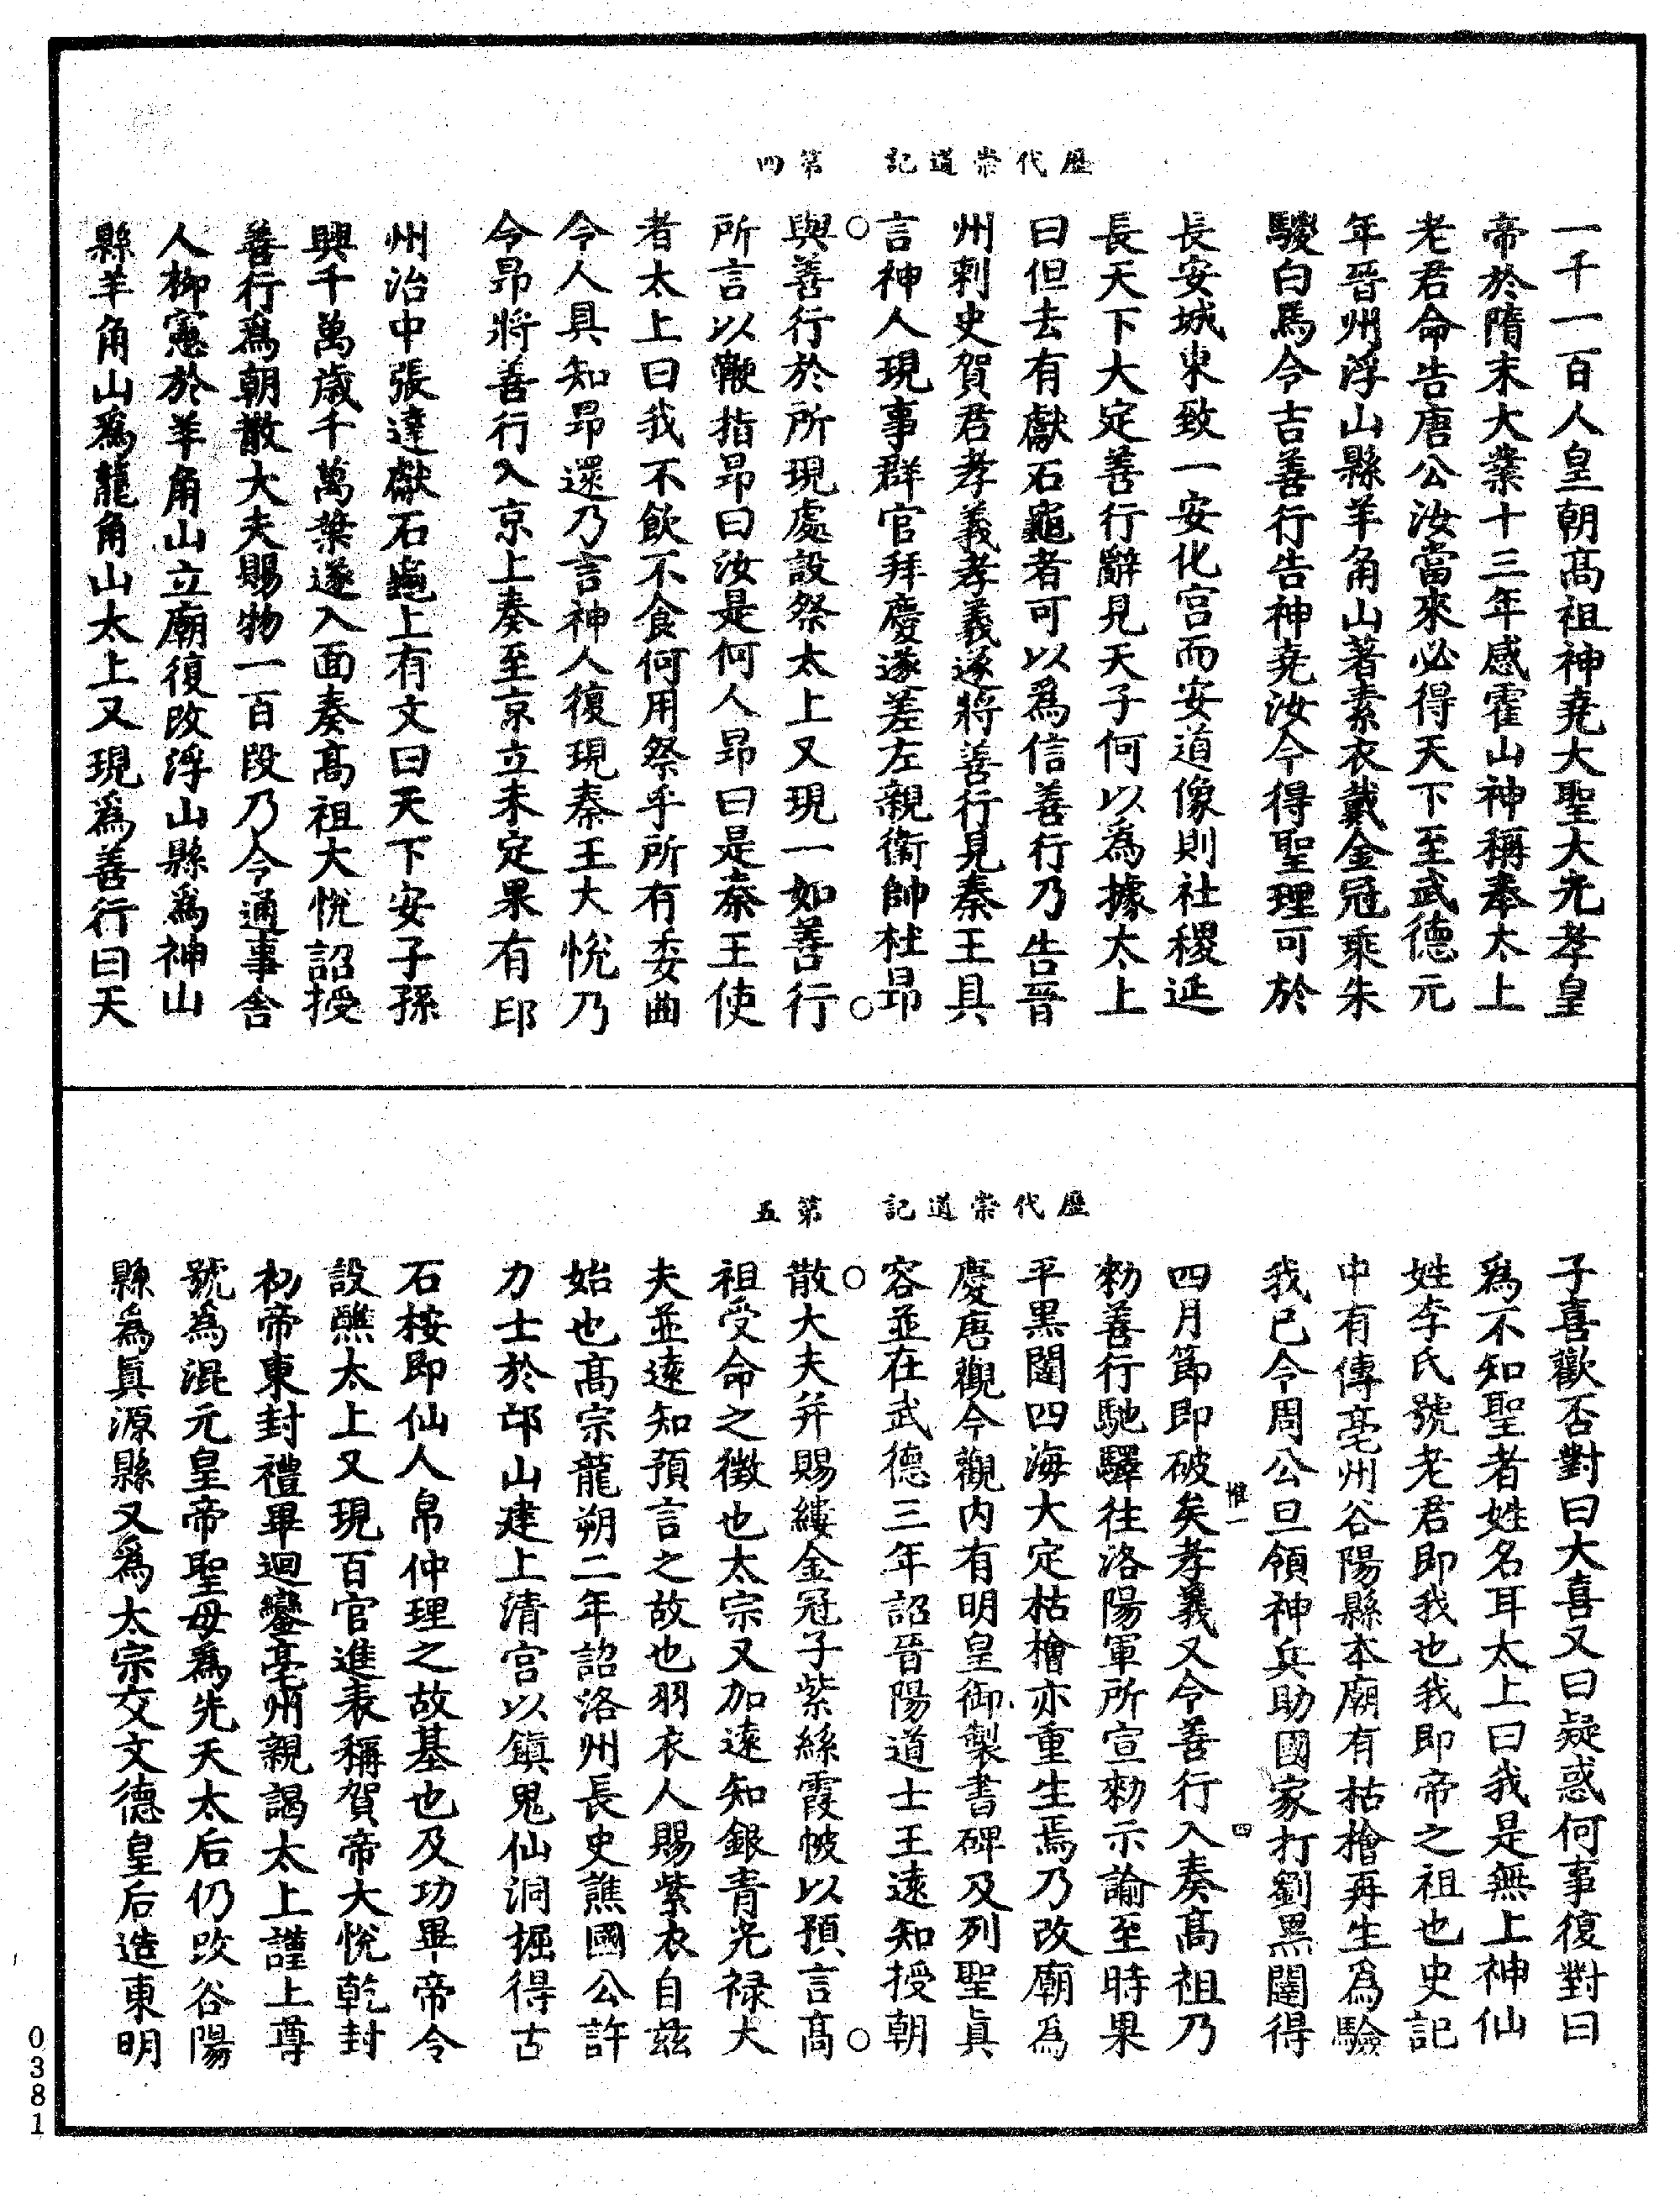 歷代崇道記　第四
一千一百人皇朝髙祖神堯大聖大光孝皇
帝於隋末大業十三年感霍山神稱奉太上
老君命告唐公汝當來必得天下至武德元
年晉州浮山縣羊角山著素衣戴金冠乘朱
騣白馬令吉善行告神堯汝今得聖理可於
長安城東致一安化宫而安道像則社稷延
長天下大定善行辭見天子何以為據太上
曰但去有獻石龜者可以爲信善行乃告晉
州刺史賀君孝義孝義遂將善行見秦王具
言神人現事群官拜慶遂差左親衞帥杜昂
與善行於所現處設祭太上又現一如善行
所言以鞭指昂曰汝是何人昂曰是秦王使
者太上曰我不飲不食何用祭乎所有委曲
令人具知昂還乃言神人復現秦王大悅乃
令昂將善行入京上奏至京立未定果有邛
州治中張達獻石龜上有文曰天下安子孫
興千萬歲千萬葉遂入面奏髙祖大悅詔授
善行爲朝散大夫賜物一百段乃令通事舍
人柳憲於羊角山立廟復改浮山縣爲神山
縣羊角山爲龍角山太上又現爲善行曰天
歷代崇道記　第五
子喜歡否對曰大喜又曰疑惑何事復對曰
爲不知聖者姓名耳太上曰我是無上神仙
姓李氏號老君即我也我即帝之祖也史記
中有傳亳州谷陽縣本廟有枯檜再生爲驗
我已令周公旦領神兵助國家打劉黑闥得
惟一　四
四月節即破矣孝義又令善行入奏髙祖乃
勑善行馳驛往洛陽軍所宣勑示諭至時果
平黑闥四海大定枯檜亦重生焉乃改廟爲
慶唐觀今觀内有明皇御製書碑及列聖真
容並在武德三年詔晉陽道士王遠知授朝
散大夫并賜縷金冠子紫絲霞帔以預言髙
祖受命之徵也太宗又加遠知銀青光禄大
夫並遠知預言之故也羽衣人賜紫衣自兹
始也髙宗龍朔二年詔洛州長史譙國公許
力士於邙山建上清宫以鎮鬼仙洞掘得古
石桉即仙人帛仲理之故基也及功畢帝令
設醮太上又現百官進表稱賀帝大悅乾封
初帝東封禮畢迴鑾亳州親謁太上謹上尊
號為混元皇帝聖母爲先天太后仍改谷陽
縣為真源縣又爲太宗文文德皇后造東明
0381